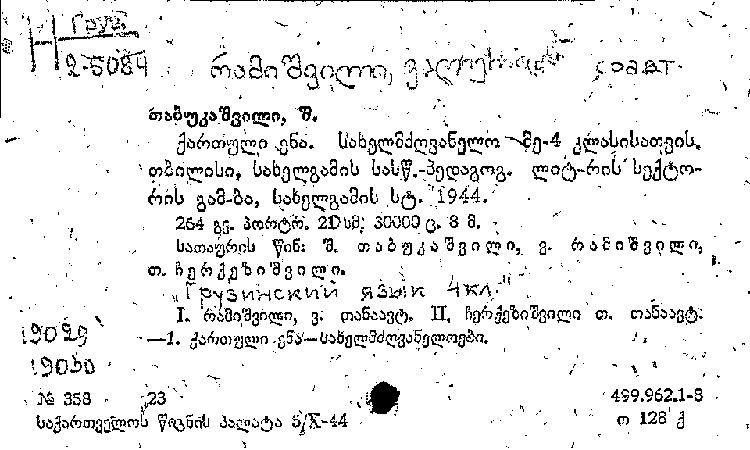 Груз.
Н 2-5084
რამიშვილი, соавт.
თაბუკაშვილი, შ.
ქართული ენა. სახელმძღვანელო მე-4 კლასისათვის.
თბილისი, სახელგამის სასწ.-პედაგოგ. ლიტ-რის სექტო-
რის გამ-ბა, სახელგამის სტ. 1944.
254 გვ. პორტრ. 21 სმ. 30000 ც. 8 მ.
სათაურის წინ: შ. თაბუკაშვილი, ვ. რამიშვილი,
თ. ჩერქეზიშვილი.
"Грузинский язык 4кл."
I. რამიშვილი, ვ. თანაავტ. II. ჩერქეზიშვილი თ. თანაავტ.
—1. ქართული ენა—სახელმძღვანელოები.
19029
19030
№ 358 23 499.962.1-8
საქართველოს წიგნის პალატა 5/X-44 ო 128 ქ